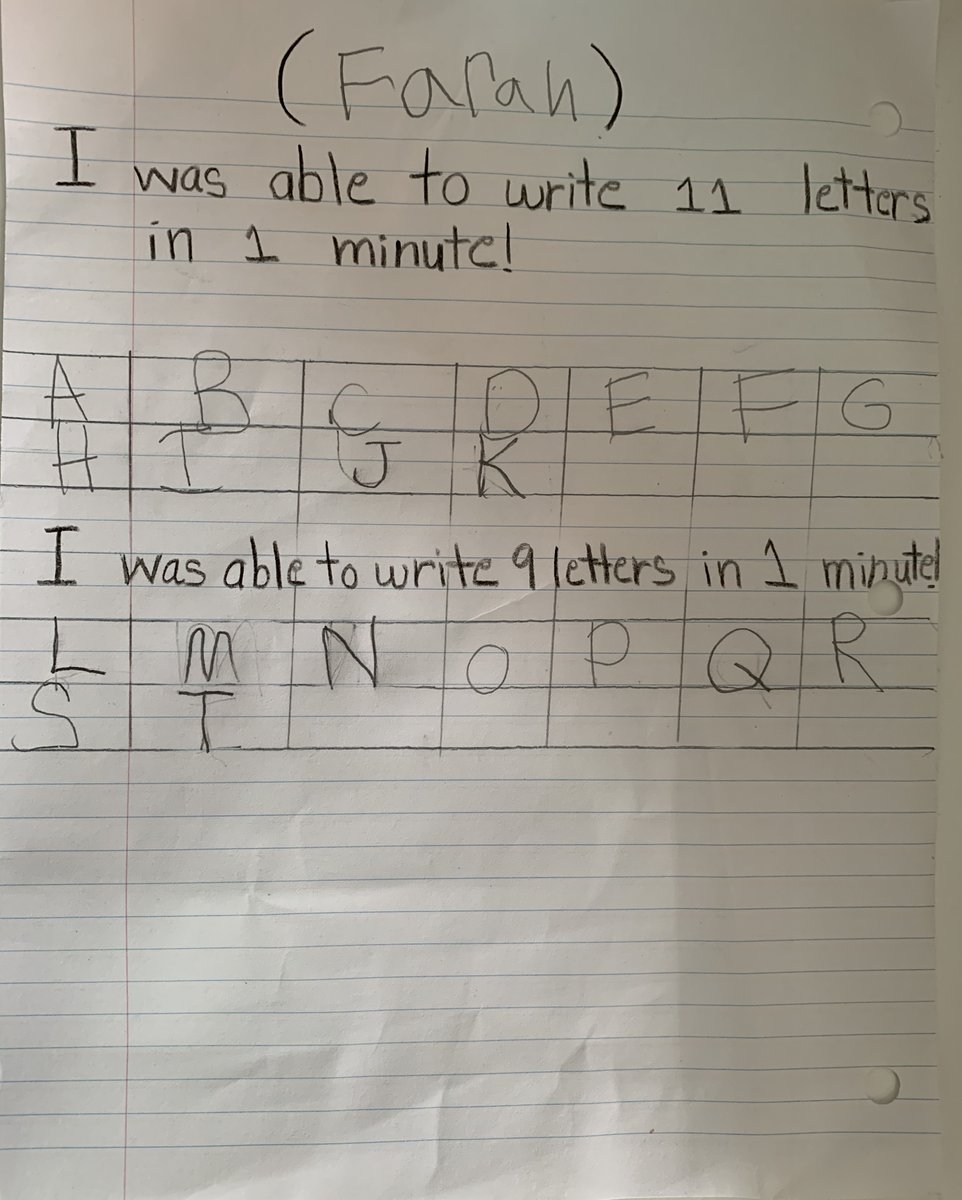 (Farah)
I was able to write 11 letters
in 1 minute!
A B C D E F G
H I J K
I was able to write 9 letters in 1 minute!
L M N O P Q R
S T